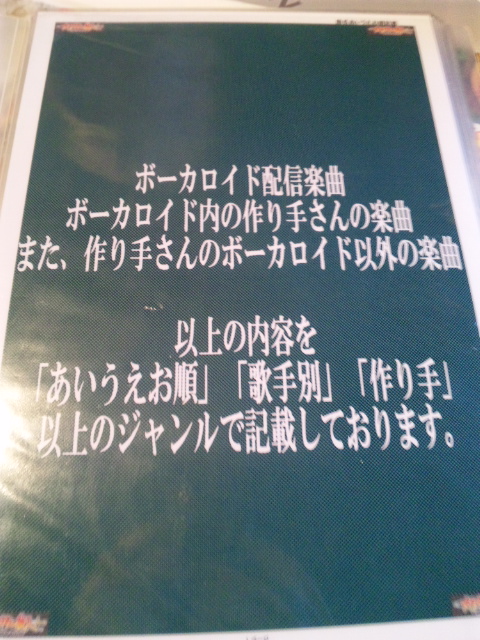 ボーカロイド配信楽曲
ボーカロイド内の作り手さんの楽曲
また、作り手さんのボーカロイド以外の楽曲
以上の内容を
「あいうえお順」「歌手別」「作り手」
以上のジャンルで記載しております。